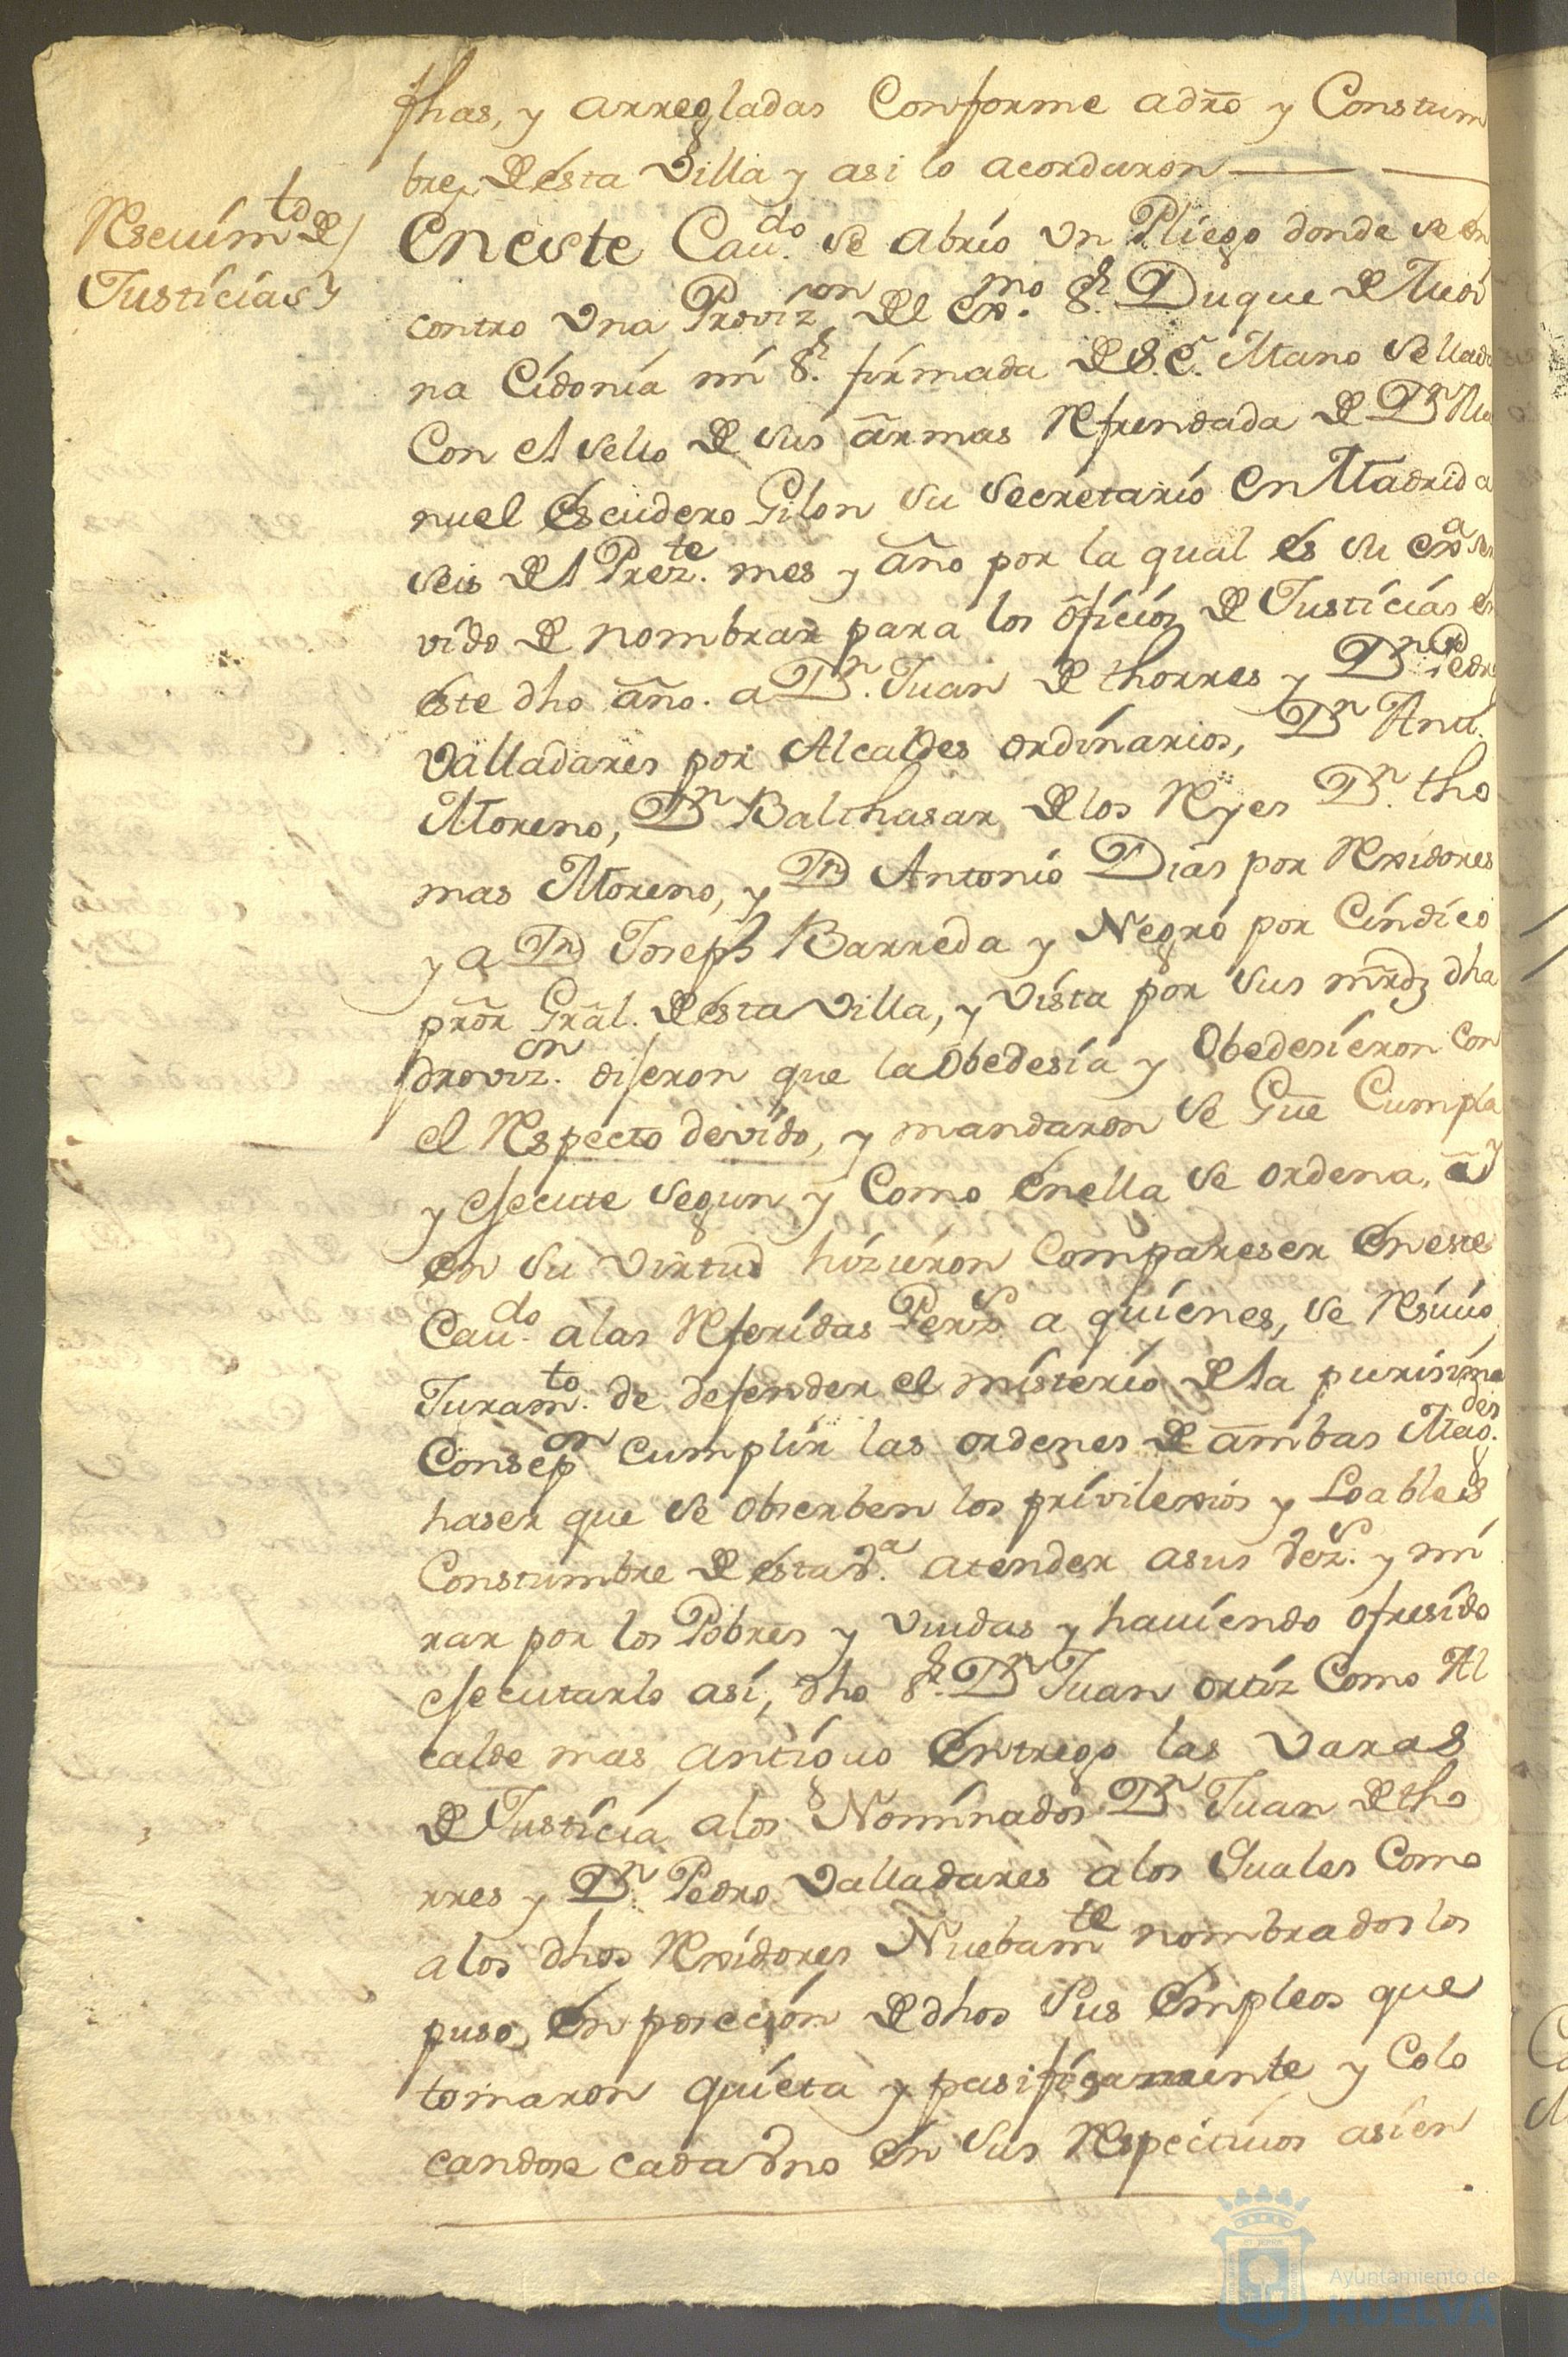 fhas, y arregladas Conforme adr̃o y Constum
bre, de ésta Villa y asi lo acordaron
Reseuim.to de
Justicias
En este Cau.do se abrio Vn Pliego donde se en
contro Vna Proviz.on del ex.mo S.r Duque de Medi
na Cidonia mi S.r firmada de S. E. Mano Sellada
Con el sello de sus ãrmas Refrendada de D.n Ma
nuel Escudero Gilon su Secretario en Madrid a
seis del Prez.te mes y año por la qual és su ex.a ser
vido de nombrar para los õficios de Justicias en
éste dho año. a D.n Juan de thorres y D.n Pedro
Valladares por Alcaldes ordinarios, D.n Ant.
Moreno, D.n Balthasar de los Reyes D.n tho
mas Moreno, y D.n Antonio Dias por Rexidores
y a D.n Joseph Barreda y Negro por Cindico
prõr Grãl. de ésta Villa, y Vista por sus mr̃dz dha
proviz.on dijeron que la Obedesia y Obedesieron con
el Respecto devido, y mandaron se Güe Cumpla
y ejecute segun y Como énella se ordena, ã y
en su Virtud hizieron Compareser en este
Cau.do a las Referidas Perz.s a quienes, se Resiuio
Juram.to de defender el misterio de la purisima
Consep.on cumplir las ordenes de ãmbas Mag.des
haser que se obserben los privilexios y Loables
Constumbre de ésta V.a atender asus Vez.s y mi
rar por los Pobres y Viudas y hauiendo ofresido
ejecutarlo así, dho S.r D.n Juan ortiz Como Al
calde mas antiguo éntrego las Varas
de Justicia a los Nominados D.n Juan de tho
rres y D.n Pedro Valladares à los Quales Como
a los dhos Rexidores Nuebam.te nombrados los
puso, én poseción de dhos sus émpleos que
tomaron quieta y pasificamente y Colo
candose cada Vno én sus Respectiuos asien
Ayuntamiento de
HUELVA